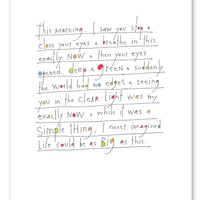 this morning, I saw you stop &
close your eyes & breathe in this
exactly NOW & then your eyes
opened, deep & green & suddenly
the world had no edges & seeing
you in the clear light was my
exactly NOW & while it was a
simple thing, I never imagined
life could be as big as this.